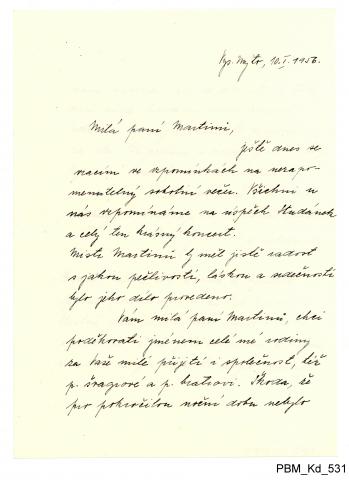 Vys. Mýto, 10.I.1956.
Milá paní Martinů,
ještě dnes se
vracím ve vzpomínkách na nezapo-
menutelný sobotní večer. Všichni u
nás vzpomínáme na úspěch Studánek
a celý ten krásný koncert.
Mistr Martinů by měl jistě radost
s jakou pečlivostí, láskou a srdečností
bylo jeho dílo provedeno.
Vám milá paní Martinů, chci
poděkovati jménem celé mé rodiny
za Vaše milé přijetí i společnost, též
p. švagrové a p. bratrovi. Škoda, že
pro pokročilou noční dobu nebylo
PBM_Kd_531